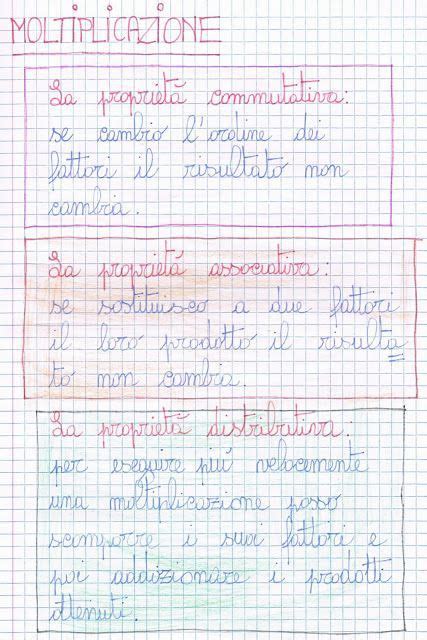 MOLTIPLICAZIONE
La proprietà commutativa:
se cambio l'ordine dei
fattori il risultato non
cambia.
La proprietà associativa:
se sostituisco a due fattori
il loro prodotto il risulta
to non cambia.
La proprietà distributiva:
per eseguire più velocemente
una moltiplicazione posso
scomporre i suoi fattori e
poi addizionare i prodotti
ottenuti.